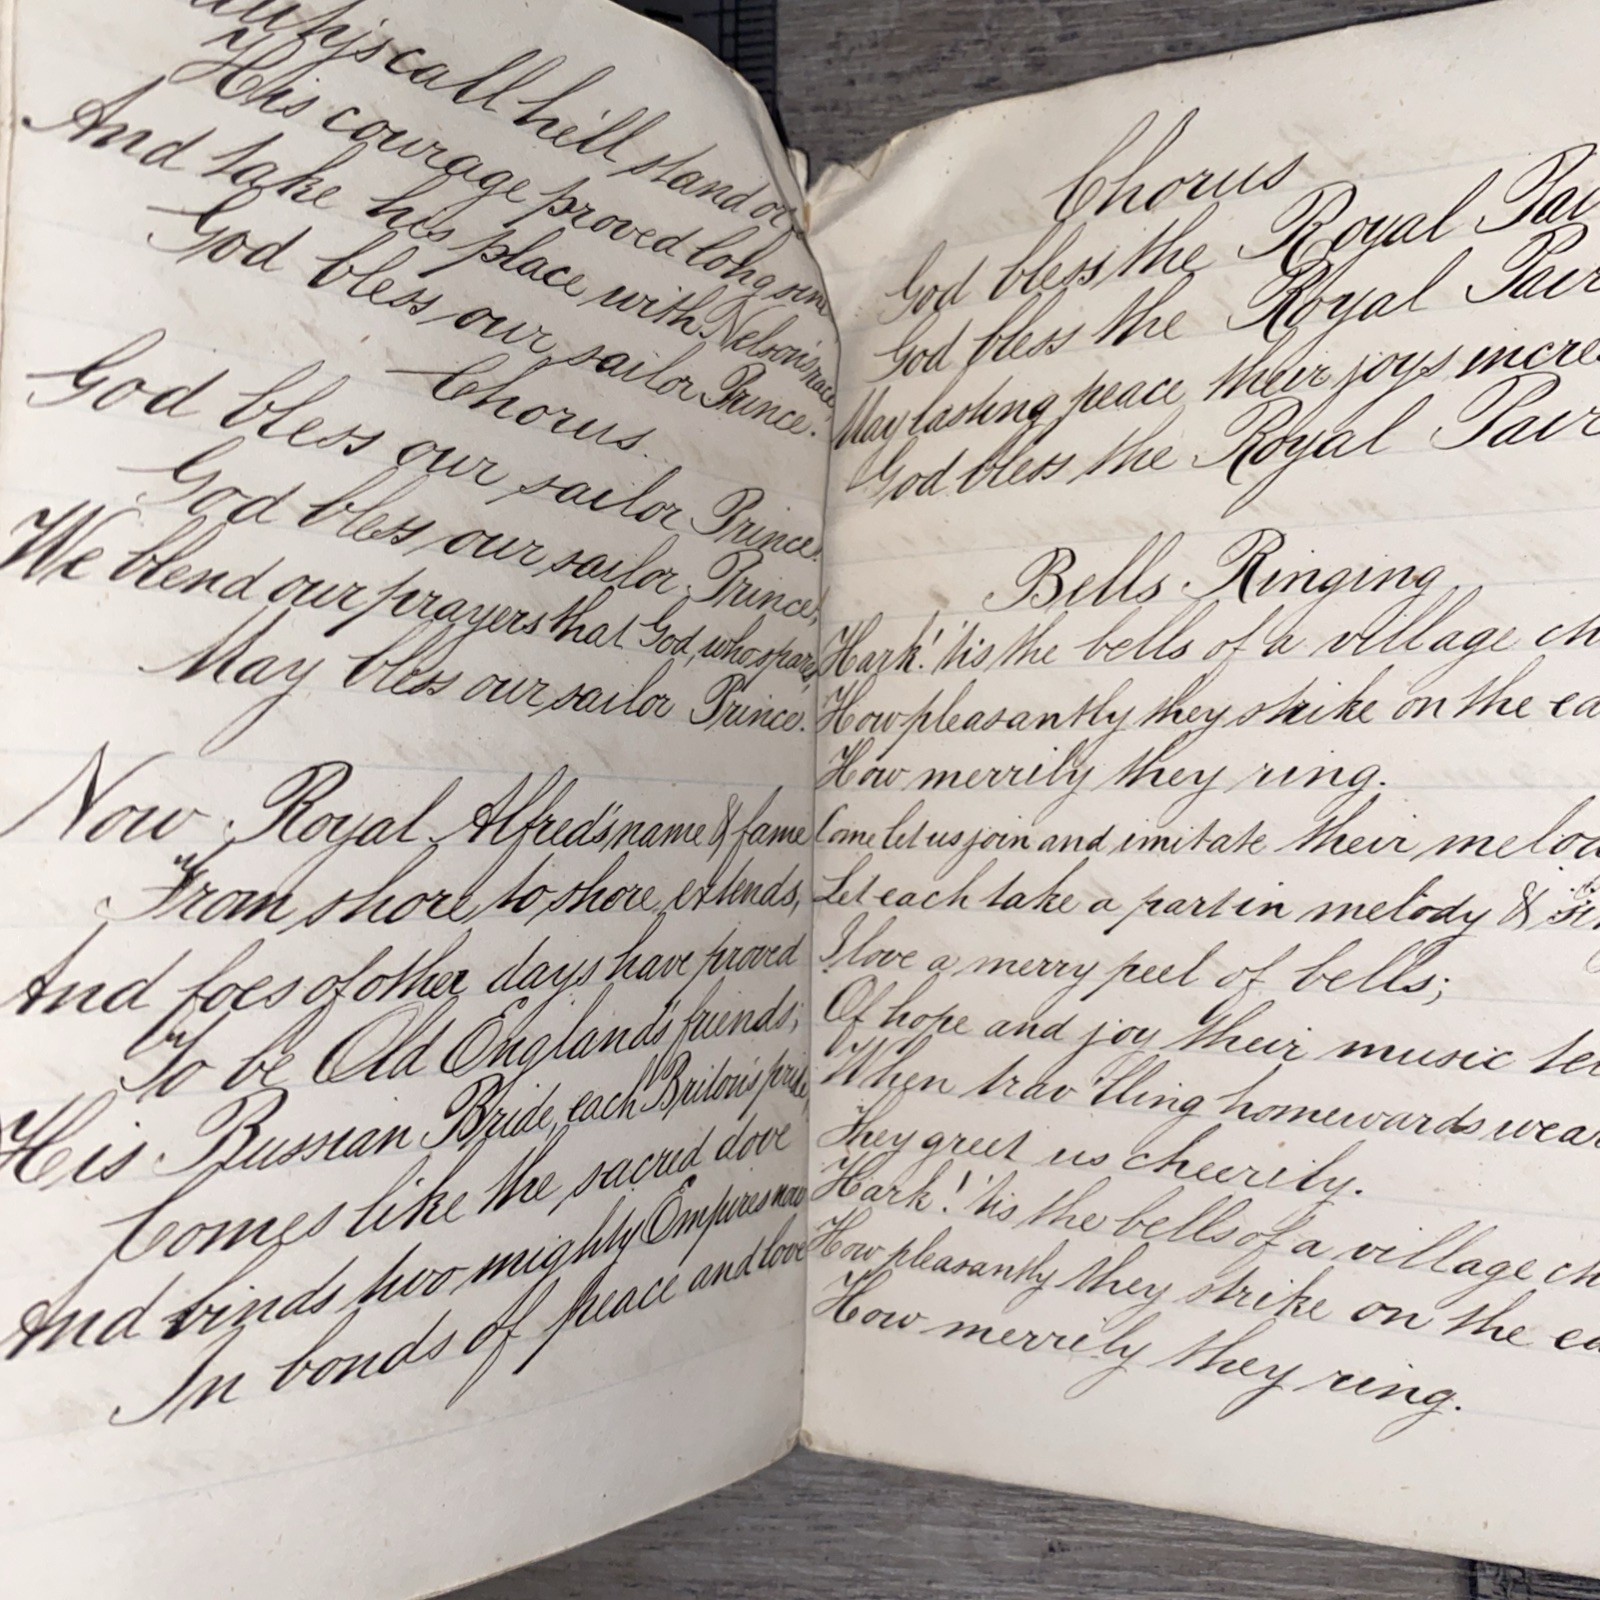 call he'll stand or
His courage proved long
And take his place with Nelson's race,
God bless our sailor Prince.
Chorus.
God bless our sailor Prince.
God bless our sailor Prince,
We blend our prayers that God, who spares,
May bless our sailor Prince.
Now Royal Alfred's name & fame
From shore to shore extends,
And foes of other days have proved
To be Old England's friends;
His Russian Bride, each Briton's pride,
Comes like the sacred dove
And binds two mighty Empires now
In bonds of peace and love
Chorus
God bless the Royal Pair
God bless the Royal Pair
May lasting peace their joys incre
God bless the Royal Pair
Bells Ringing
Hark! 'tis the bells of a village ch
How pleasantly they strike on the ea
How merrily they ring.
Come let us join and imitate their melod
Let each take a part in melody &
I love a merry peel of bells;
Of hope and joy their music te
When trav'lling homewards wear
They greet us cheerily.
Hark! 'tis the bells of a village ch
How pleasantly they strike on the ea
How merrily they ring.